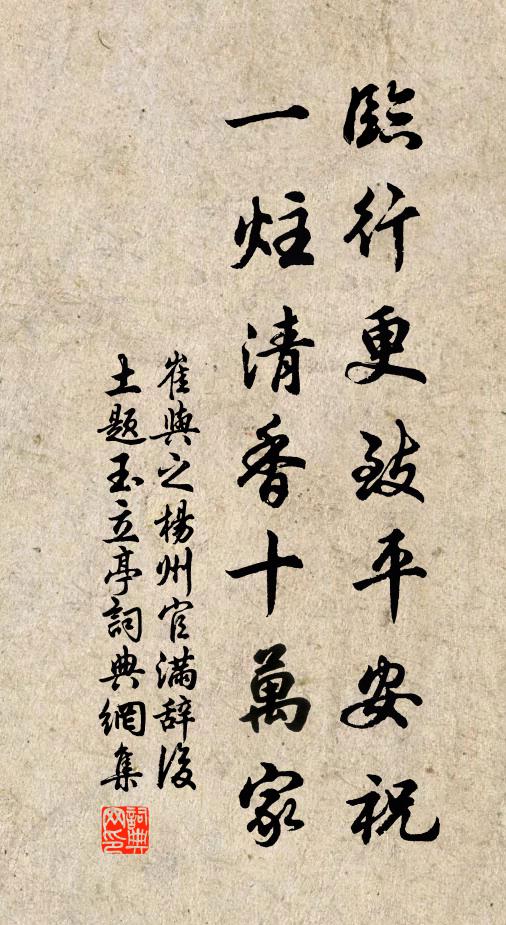 臨行更致平安祝
一炷清香十萬家
崔與之楊州官滿辭後
土題玉立亭詞典網集
詞典网印